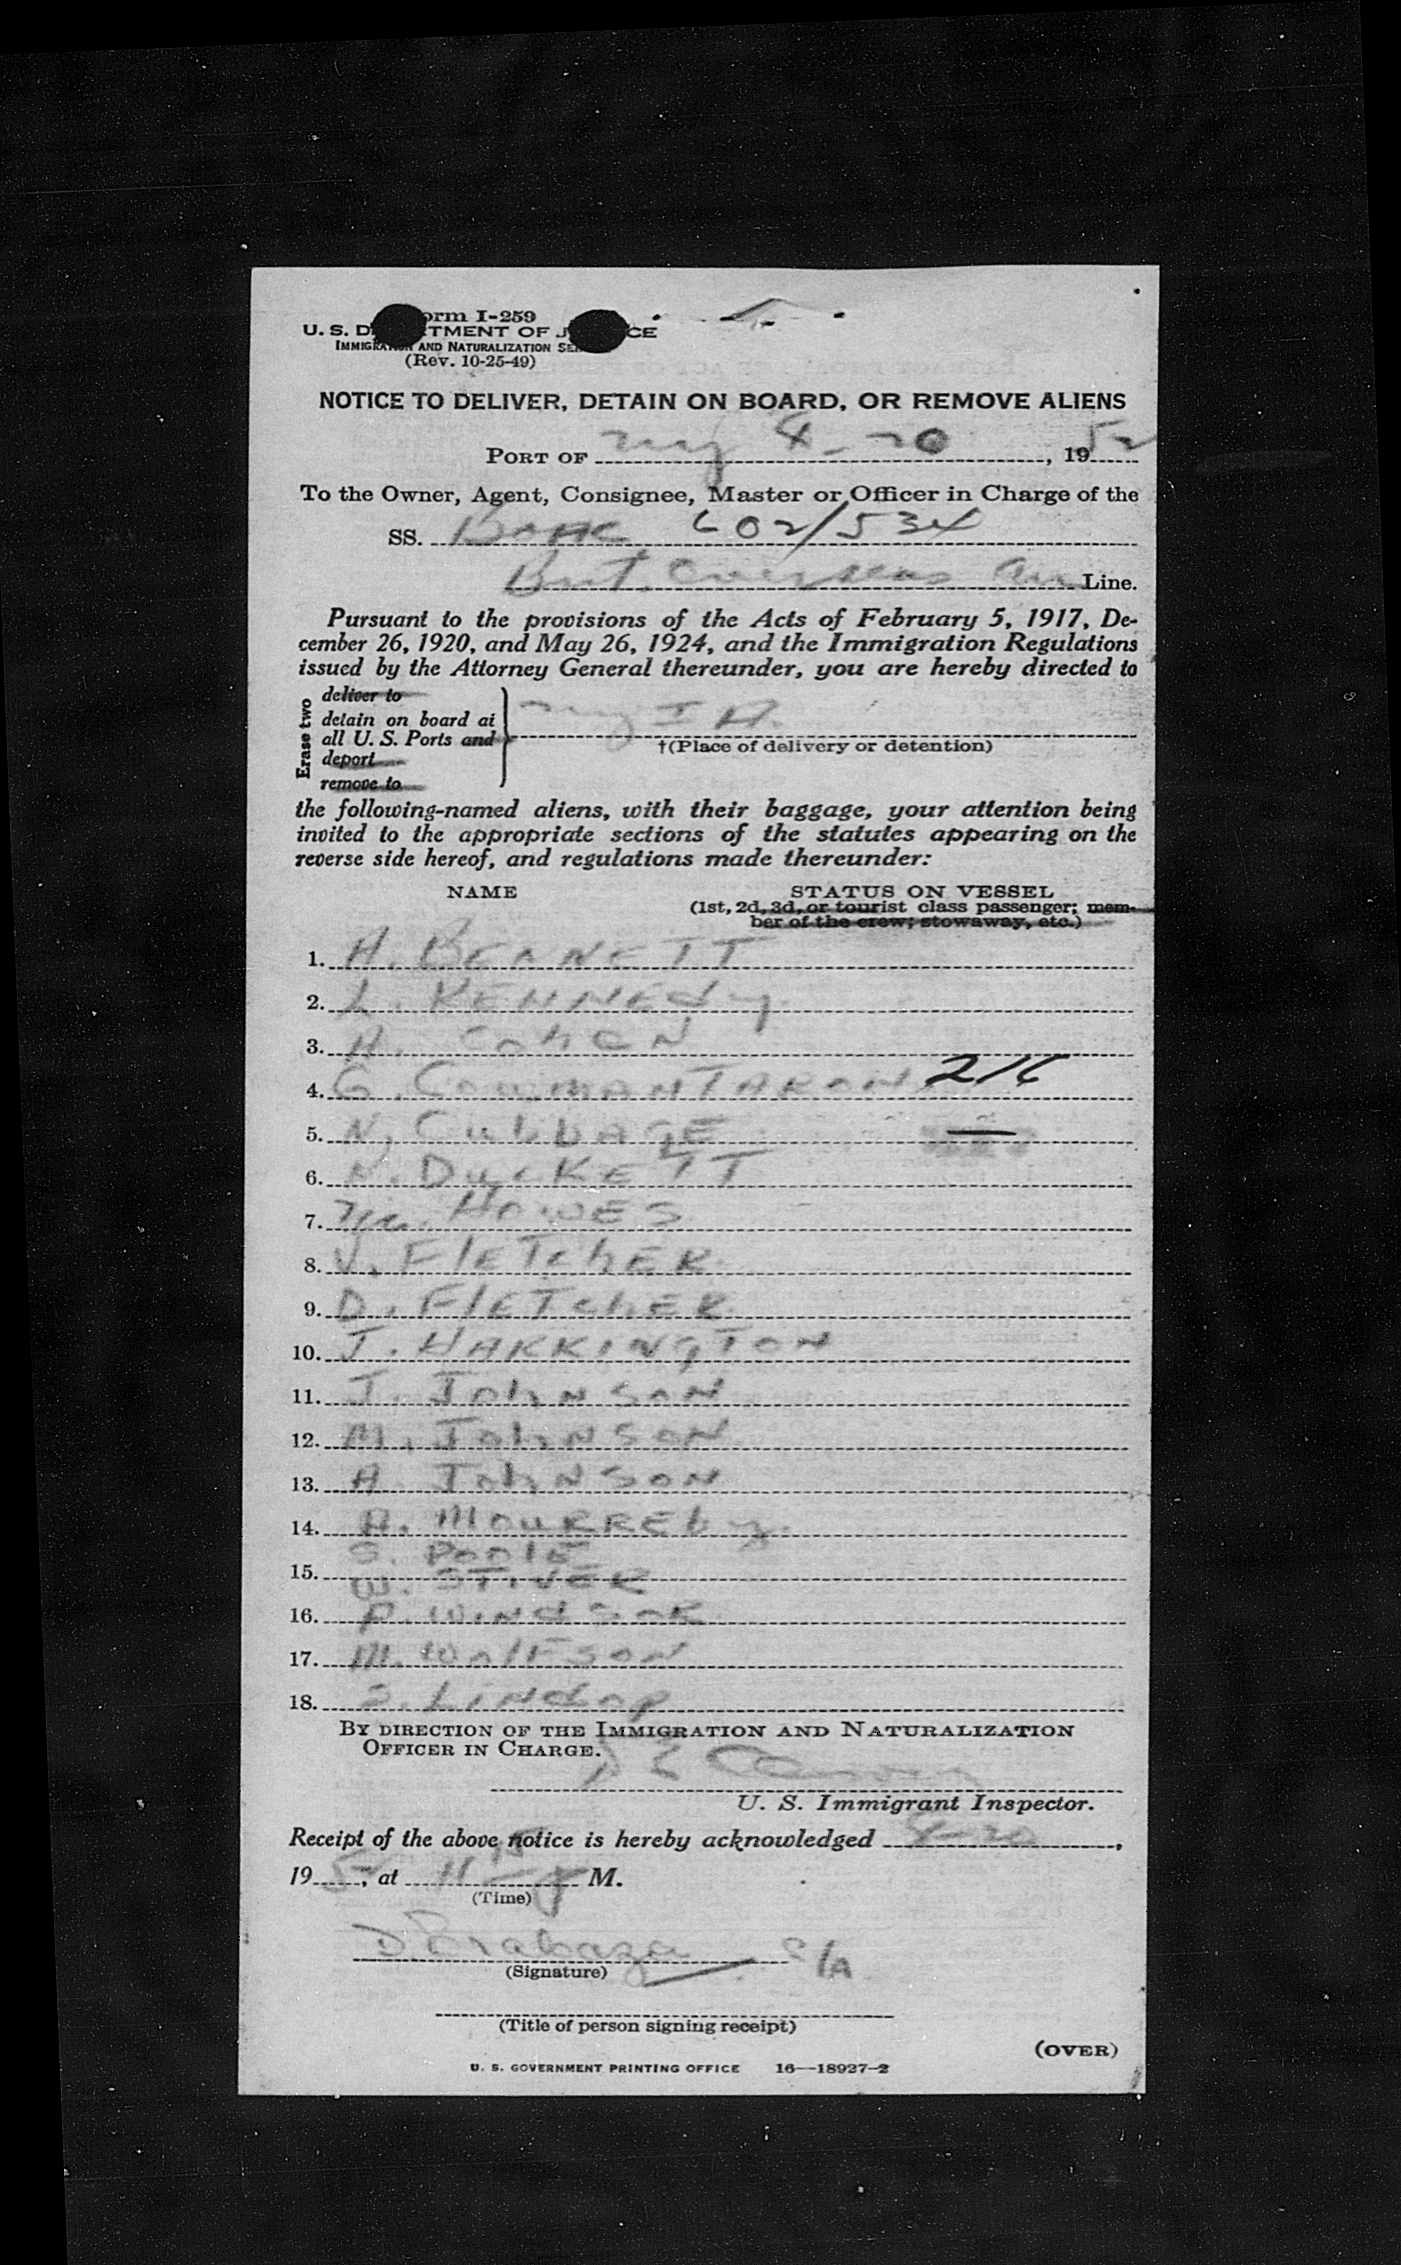 Form I-259
U. S. DEPARTMENT OF JUSTICE
IMMIGRATION AND NATURALIZATION SERVICE
(Rev. 10-25-49)
NOTICE TO DELIVER, DETAIN ON BOARD, OR REMOVE ALIENS
PORT OF NY 4-20, 1952
To the Owner, Agent, Consignee, Master or Officer in Charge of the
SS. BOAC 602/534
Brit. Overseas Air Line.
Pursuant to the provisions of the Acts of February 5, 1917, De-
cember 26, 1920, and May 26, 1924, and the Immigration Regulations
issued by the Attorney General thereunder, you are hereby directed to
Erase two
deliver to
detain on board at
all U. S. Ports and
deport
remove to
NY I A.
†(Place of delivery or detention)
the following-named aliens, with their baggage, your attention being
invited to the appropriate sections of the statutes appearing on the
reverse side hereof, and regulations made thereunder:
NAME STATUS ON VESSEL
(1st, 2d, 3d, or tourist class passenger; mem-
ber of the crew; stowaway, etc.)
1. H. BENNETT
2. L. KENNEdy
3. A. COhEN
4. G. 216
5. N. CubbAGE
6. N. DucKETT
7. HOWES
8. V. FlETchER
9. D. FlETchER
10. J. HARRINGTON
11. J. JOhNSON
12. M. JOhNSON
13. A. JOhNSON
14. A.
S. POOlE
15. W. STIVER
16. P. WINdSOR
17. M. WOlFSON
18. S. LINdOP
BY DIRECTION OF THE IMMIGRATION AND NATURALIZATION
OFFICER IN CHARGE.
U. S. Immigrant Inspector.
Receipt of the above notice is hereby acknowledged 4-20,
195, at 11 15 M.
(Time)
(Signature)
(Title of person signing receipt)
(OVER)
U. S. GOVERNMENT PRINTING OFFICE 16—18927-2